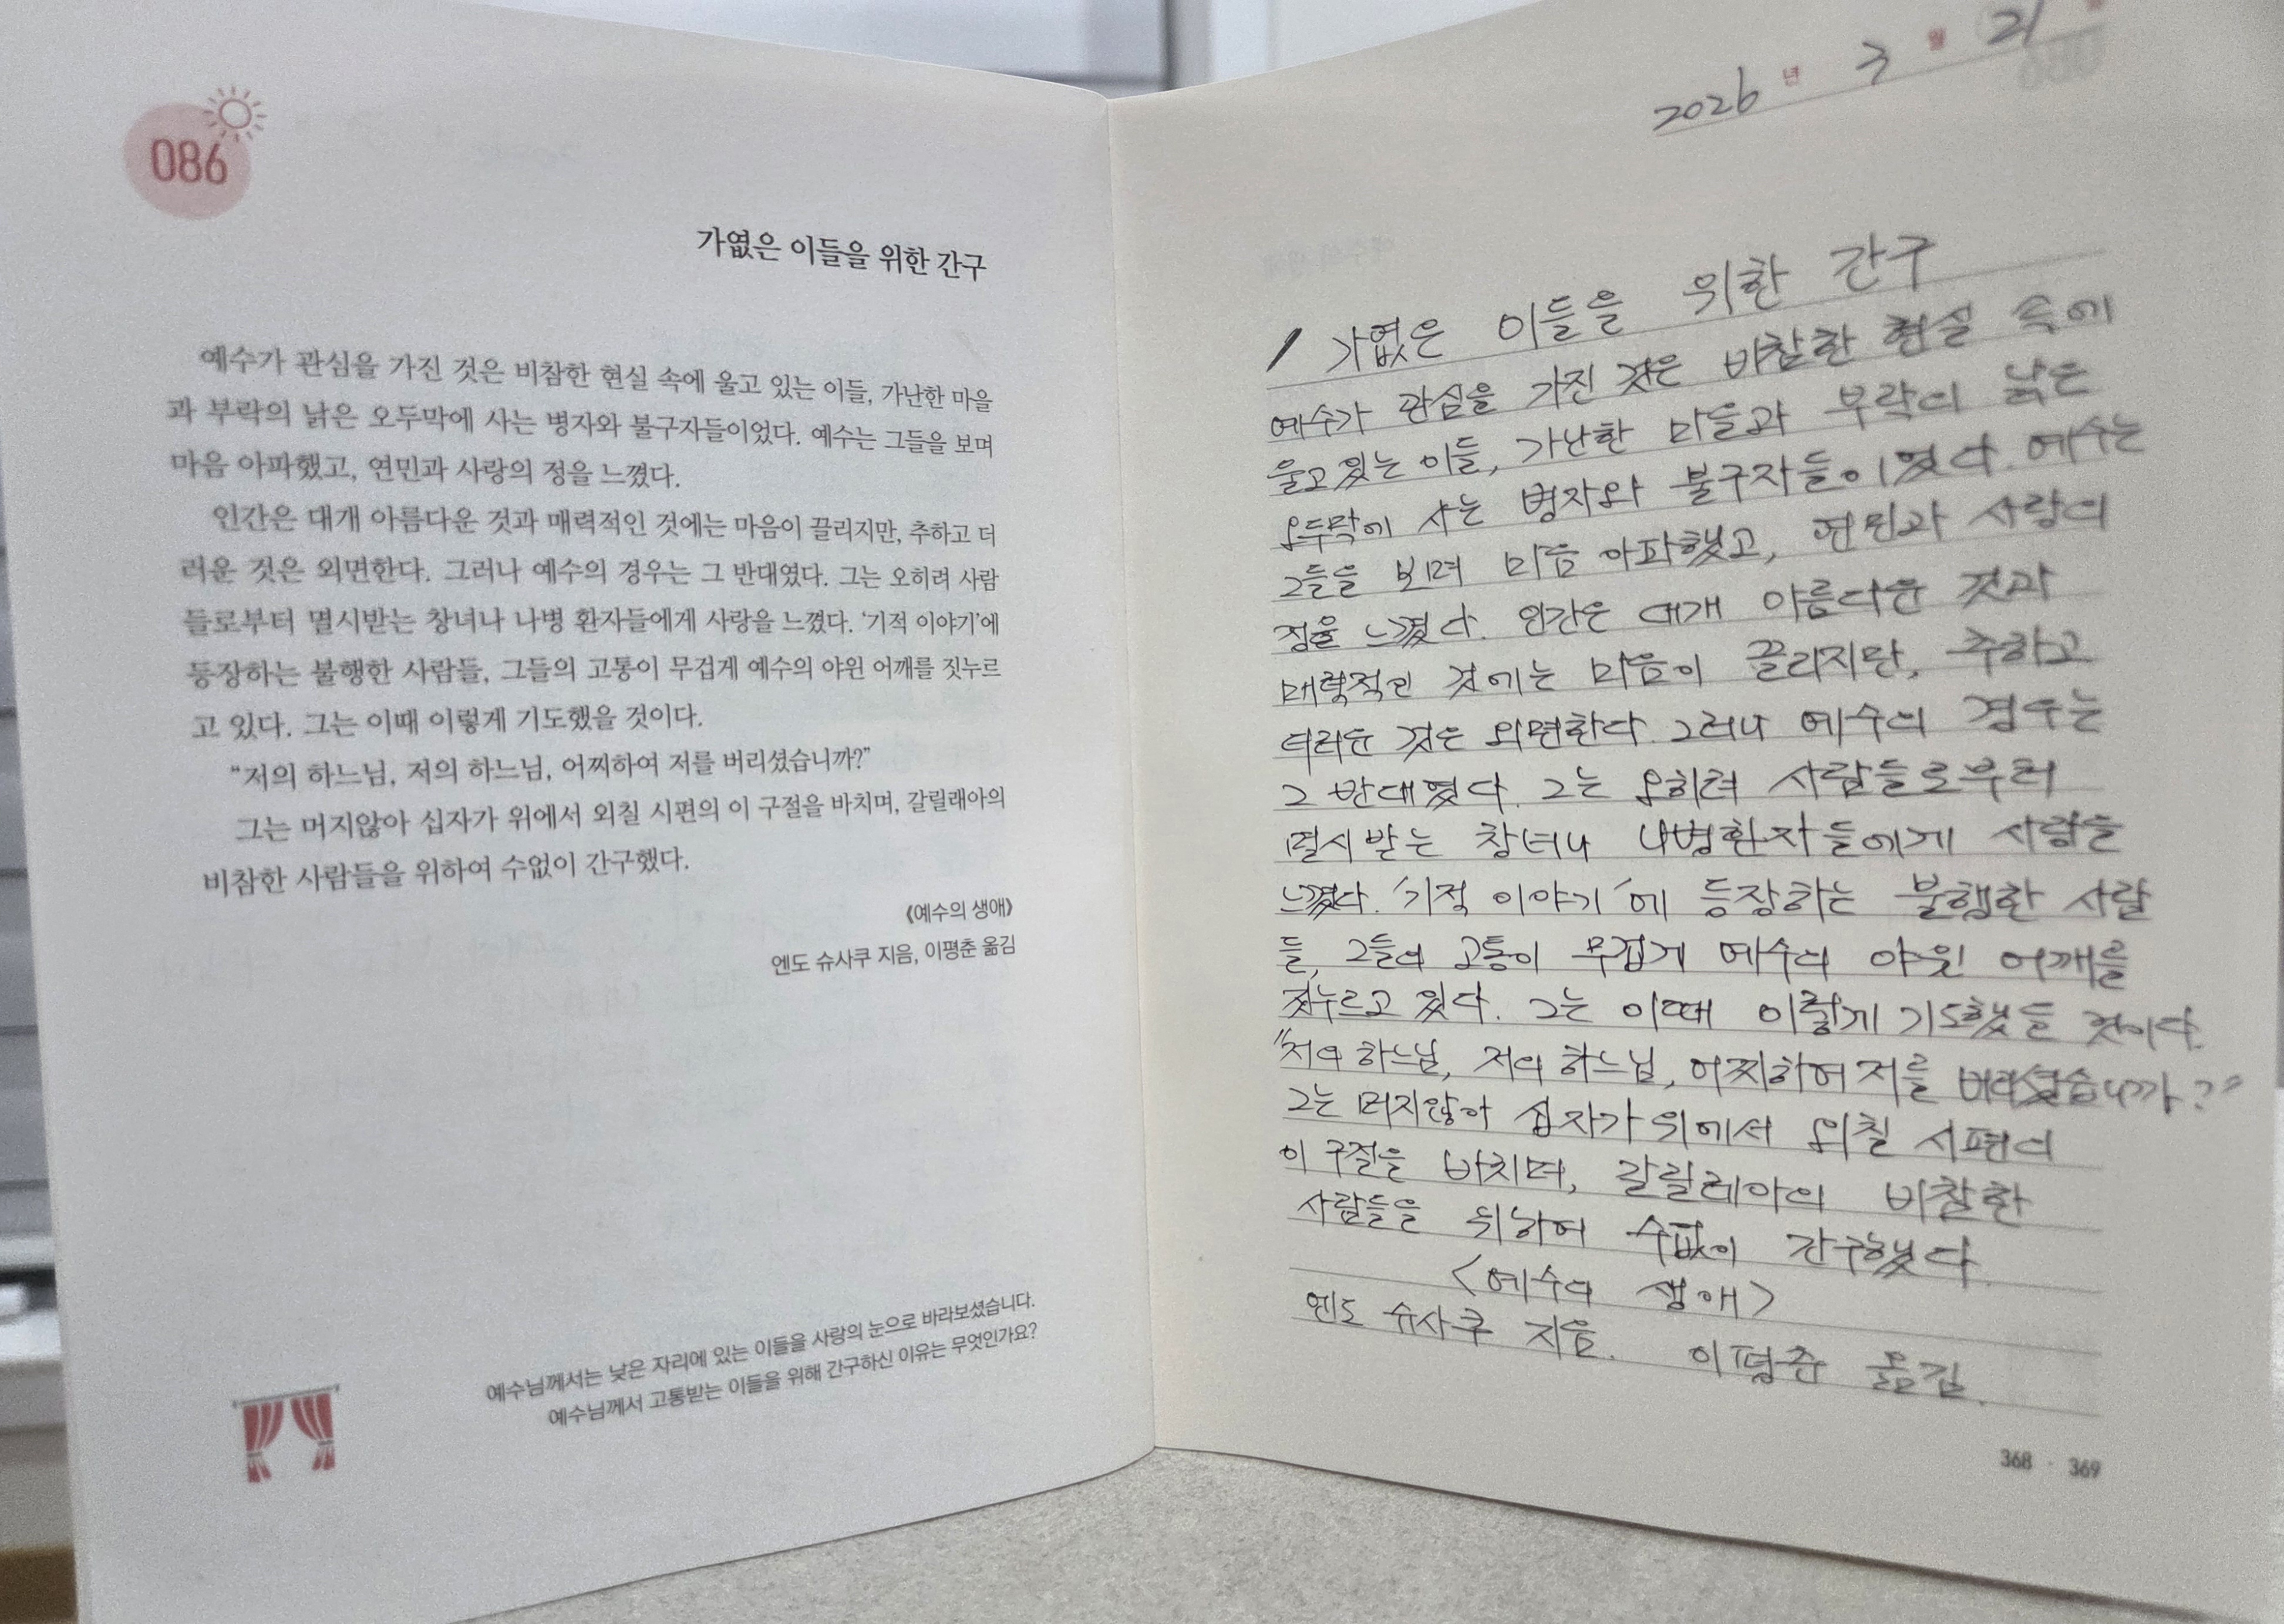 086
가엾은 이들을 위한 간구
예수가 관심을 가진 것은 비참한 현실 속에 울고 있는 이들, 가난한 마을
과 부락의 낡은 오두막에 사는 병자와 불구자들이었다. 예수는 그들을 보며
마음 아파했고, 연민과 사랑의 정을 느꼈다.
인간은 대개 아름다운 것과 매력적인 것에는 마음이 끌리지만, 추하고 더
러운 것은 외면한다. 그러나 예수의 경우는 그 반대였다. 그는 오히려 사람
들로부터 멸시받는 창녀나 나병 환자들에게 사랑을 느꼈다. ‘기적 이야기’에
등장하는 불행한 사람들, 그들의 고통이 무겁게 예수의 야윈 어깨를 짓누르
고 있다. 그는 이때 이렇게 기도했을 것이다.
“저의 하느님, 저의 하느님, 어찌하여 저를 버리셨습니까?”
그는 머지않아 십자가 위에서 외칠 시편의 이 구절을 바치며, 갈릴래아의
비참한 사람들을 위하여 수없이 간구했다.
《예수의 생애》
엔도 슈사쿠 지음, 이평춘 옮김
예수님께서는 낮은 자리에 있는 이들을 사랑의 눈으로 바라보셨습니다.
예수님께서 고통받는 이들을 위해 간구하신 이유는 무엇인가요?
2026 년 3 월 21
가엾은 이들을 위한 간구
예수가 관심을 가진 것은 비참한 현실 속에
울고 있는 이들, 가난한 마을과 부락의 낡은
오두막에 사는 병자와 불구자들이었다. 예수는
그들을 보며 마음 아파했고, 연민과 사랑의
정을 느꼈다. 인간은 대개 아름다운 것과
매력적인 것에는 마음이 끌리지만, 추하고
더러운 것은 외면한다. 그러나 예수의 경우는
그 반대였다. 그는 오히려 사람들로부터
멸시받는 창녀나 나병환자들에게 사랑을
느꼈다. '기적 이야기'에 등장하는 불행한 사람
들, 그들의 고통이 무겁게 예수의 야윈 어깨를
짓누르고 있다. 그는 이때 이렇게 기도했을 것이다.
"저의 하느님, 저의 하느님, 어찌하여 저를 버리셨습니까?"
그는 머지않아 십자가 위에서 외칠 시편의
이 구절을 바치며, 갈릴레아의 비참한
사람들을 위하여 수없이 간구했다.
<예수의 생애>
엔도 슈사쿠 지음. 이평춘 옮김.
368 · 369